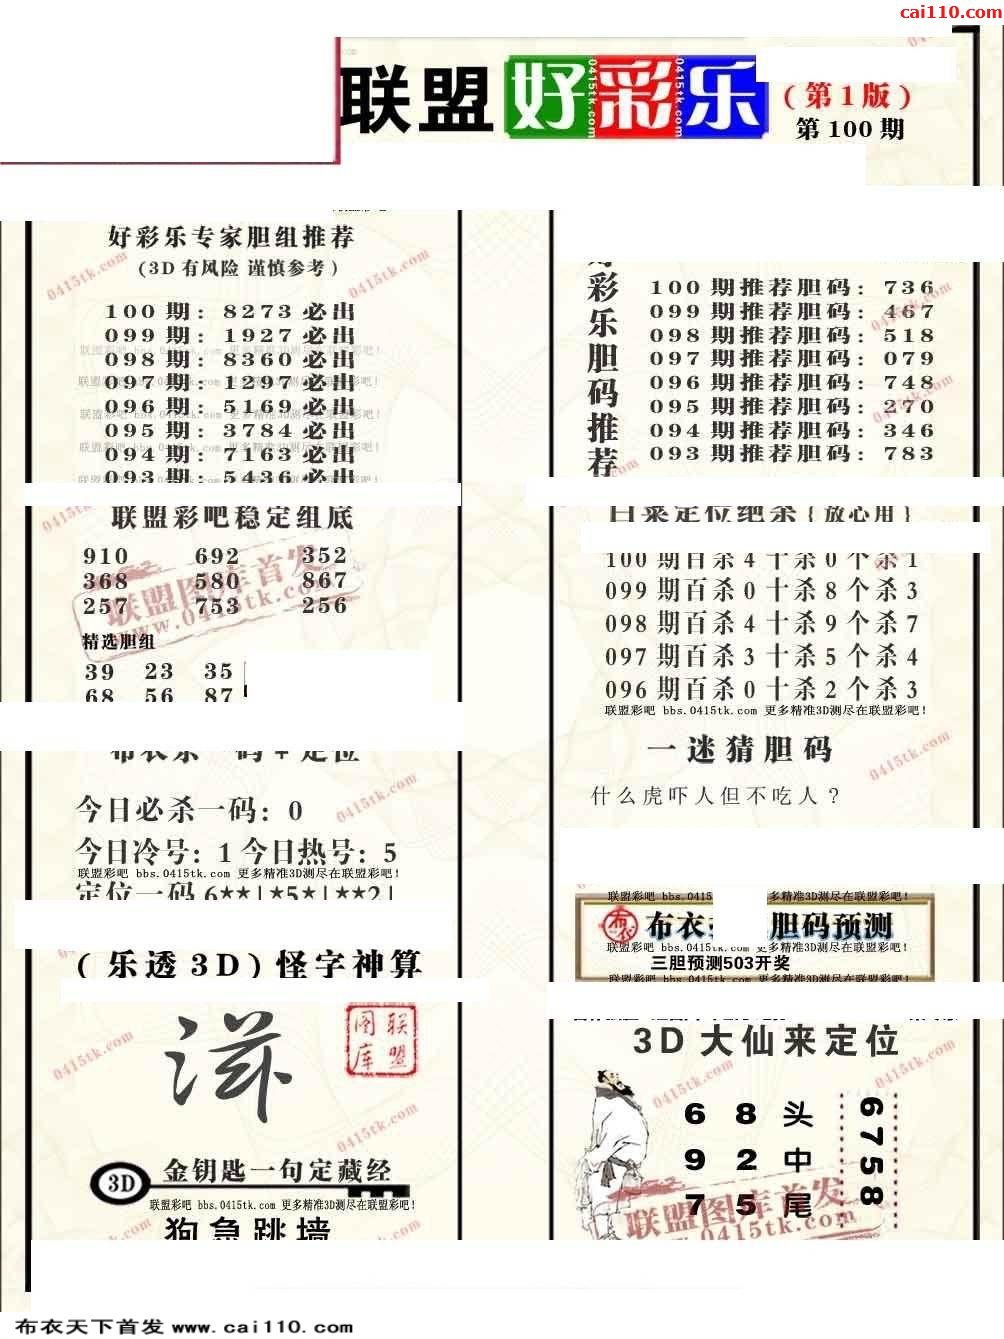 cai110.com
联盟好彩乐
(第1版)
第100期
好彩乐专家胆组推荐
(3D有风险 谨慎参考)
100期: 8273必出
099期: 1927必出
098期: 8360必出
097期: 1297必出
096期: 5169必出
095期: 3784必出
094期: 7163必出
093期: 5436必出
联盟彩吧稳定组底
910 692 352
368 580 867
257 753 256
精选胆组
39 23 35
68 56 87
今日必杀一码: 0
今日冷号: 1 今日热号: 5
联盟彩吧 bbs.0415tk.com 更多精准3D测尽在联盟彩吧!
定位一码 6★★|★5★|★★2|
(乐透3D)怪字神算
联盟图库
3D
金钥匙一句定藏经
联盟彩吧 bbs.0415tk.com 更多精准3D测尽在联盟彩吧!
狗急跳墙
彩乐胆码推荐
100期推荐胆码: 736
099期推荐胆码: 467
098期推荐胆码: 518
097期推荐胆码: 079
096期推荐胆码: 748
095期推荐胆码: 270
094期推荐胆码: 346
093期推荐胆码: 783
白菜定位绝杀{放心用}
100期百杀4十杀0个杀1
099期百杀0十杀8个杀3
098期百杀4十杀9个杀7
097期百杀3十杀5个杀4
096期百杀0十杀2个杀3
联盟彩吧 bbs.0415tk.com 更多精准3D测尽在联盟彩吧!
一迷猜胆码
什么虎吓人但不吃人?
联盟彩吧 bbs.0415
多精准3D测尽在联盟彩吧!
布衣
布衣 胆码预测
联盟彩吧 bbs.0415tk.com 更多精准3D测尽在联盟彩吧!
三胆预测503开奖
3D大仙来定位
6 8 头
9 2 中
7 5 尾
6758
联盟图库首发
www.0415tk.com
联盟图库首发
0415tk.com
布衣天下首发 www.cai110.com